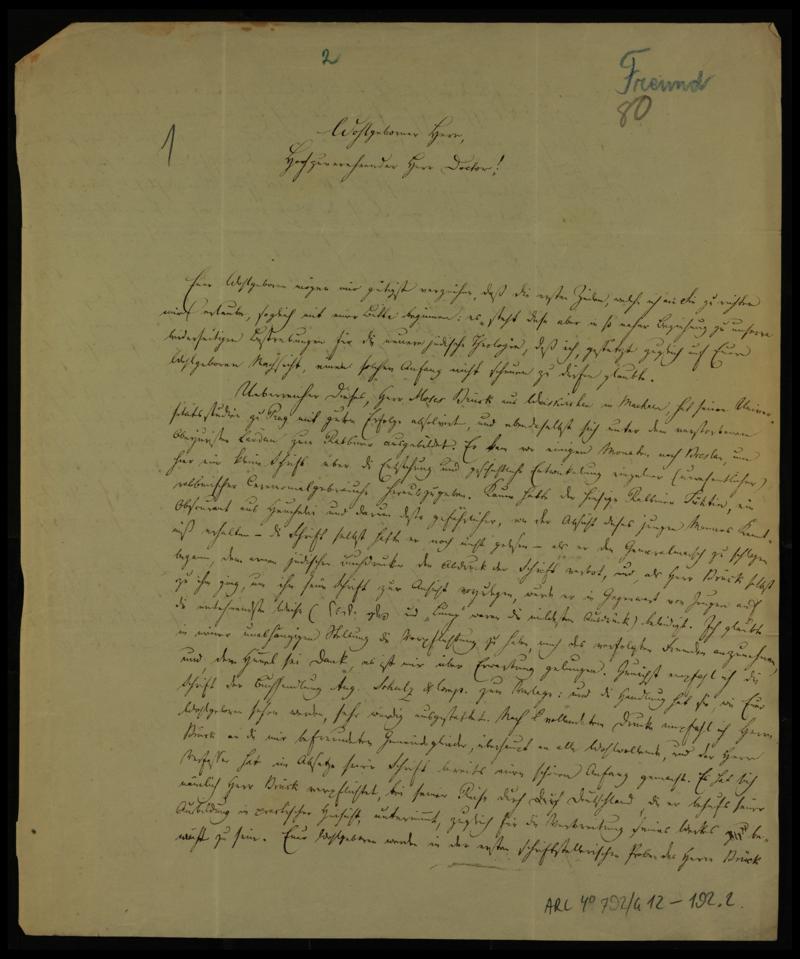 2
Freund
80
1
Wohlgeborner Herr,
Hochzuverehrender Herr Doctor!
Euer Wohlgeboren mögen mir gütigst verzeihen, daß die ersten Zeilen, welche ich an Sie zu richten
mir erlaube, sogleich mit einer Bitte beginnen: es steht diese aber in so naher Beziehung zu unseren
beiderseitigen Bestrebungen für die neuere jüdische Theologie, daß ich, gestützt zugleich auf Euer
Wohlgeboren Nachsicht, einen solchen Anfang nicht scheuen zu dürfen glaubte.
Ueberreicher Dieses, Herr Moses Brück aus in Maehren, hat seine Univer-
sitätsstudien zu Prag mit gutem Erfolge absolvirt, und ebendaselbst sich unter dem verstorbenen
Oberjuristen Landau zum Rabbiner ausgebildet. Er kam vor einigen Monaten nach Breslau, um
hier eine kleine Schrift über die Entstehung und geschichtliche Entwickelung einzelner (unwesentlicher)
rabbinischer Ceremonialgebräuche herauszugeben. Kaum hatte der hiesige Rabbiner Tiktin, ein
Obscurant aus Heuchelei und darum desto gefährlicher, von der Absicht dieses jungen Mannes Kennt-
niß erhalten – die Schrift selbst hatte er noch nicht gelesen – als er den Generalmarsch zu schlagen
begann, dem armen jüdischen Buchdrucker den Abdruck der Schrift verbot, und, als Herr Brück selbst
zu ihm ging, um ihm seine Schrift zur Ansicht vorzulegen, wurde er in Gegenwart von Zeugen auf
die entehrendste Weise ( und waren die mildesten Ausdrücke) beleidigt. Ich glaubte
in meiner unabhängigen Stellung die Verpflichtung zu haben, mich des verfolgten Fremden anzunehmen,
und dem Himmel sei Dank, es ist mir über Erwartung gelungen. Zunächst empfahl ich die
Schrift der Buchhandlung Aug. Schulz & Comp. zum Verlage: und die Handlung hat sie, wie Euer
Wohlgeboren sehen werden, sehr würdig ausgestattet. Nach vollendetem Druck empfahl ich Herrn
Brück an die mir befreundeten Gemeindeglieder, überhaupt an alle Wohlwollende, und der Herr
Verfasser hat im Absatze seiner Schrift bereits einen schönen Anfang gemacht. Es hat sich
nämlich Herr Brück verpflichtet, bei seiner Reise durch Deutschland, die er behufs seiner
Ausbildung in practischer Hinsicht, unternimmt, zugleich für die Verbreitung seines Werks be-
müht zu sein. Euer Wohlgeboren werden in der ersten schriftstellerischen Probe des Herrn Brück
ARC 4° 792/G 12 – 192.2.